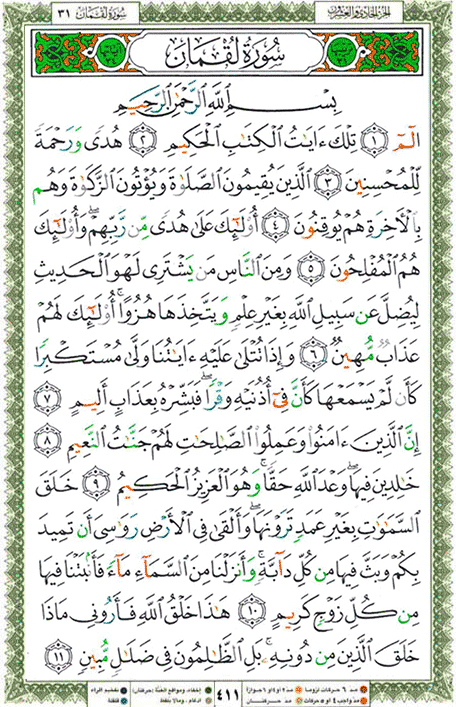 الجزء الحادي والعشرون سورة لقمان ٣١
ترتيبها ٣١ سُورَةُ لُقْمَانَ آياتها ٣٤
بِسْمِ ٱللَّهِ ٱلرَّحْمَٰنِ ٱلرَّحِيمِ
الٓمٓ ١ تِلْكَ ءَايَٰتُ ٱلْكِتَٰبِ ٱلْحَكِيمِ ٢ هُدًى وَرَحْمَةً
لِّلْمُحْسِنِينَ ٣ ٱلَّذِينَ يُقِيمُونَ ٱلصَّلَوٰةَ وَيُؤْتُونَ ٱلزَّكَوٰةَ وَهُم
بِٱلْأَخِرَةِ هُمْ يُوقِنُونَ ٤ أُو۟لَٰٓئِكَ عَلَىٰ هُدًى مِّن رَّبِّهِمْ ۖ وَأُو۟لَٰٓئِكَ
هُمُ ٱلْمُفْلِحُونَ ٥ وَمِنَ ٱلنَّاسِ مَن يَشْتَرِى لَهْوَ ٱلْحَدِيثِ
لِيُضِلَّ عَن سَبِيلِ ٱللَّهِ بِغَيْرِ عِلْمٍ وَيَتَّخِذَهَا هُزُوًا ۚ أُو۟لَٰٓئِكَ لَهُمْ
عَذَابٌ مُّهِينٌ ٦ وَإِذَا تُتْلَىٰ عَلَيْهِ ءَايَٰتُنَا وَلَّىٰ مُسْتَكْبِرًا
كَأَن لَّمْ يَسْمَعْهَا كَأَنَّ فِىٓ أُذُنَيْهِ وَقْرًا ۖ فَبَشِّرْهُ بِعَذَابٍ أَلِيمٍ ٧
إِنَّ ٱلَّذِينَ ءَامَنُوا۟ وَعَمِلُوا۟ ٱلصَّٰلِحَٰتِ لَهُمْ جَنَّٰتُ ٱلنَّعِيمِ ٨
خَٰلِدِينَ فِيهَا ۖ وَعْدَ ٱللَّهِ حَقًّا ۚ وَهُوَ ٱلْعَزِيزُ ٱلْحَكِيمُ ٩ خَلَقَ
ٱلسَّمَٰوَٰتِ بِغَيْرِ عَمَدٍ تَرَوْنَهَا ۖ وَأَلْقَىٰ فِى ٱلْأَرْضِ رَوَٰسِىَ أَن تَمِيدَ
بِكُمْ وَبَثَّ فِيهَا مِن كُلِّ دَآبَّةٍ ۚ وَأَنزَلْنَا مِنَ ٱلسَّمَآءِ مَآءً فَأَنۢبَتْنَا فِيهَا
مِن كُلِّ زَوْجٍ كَرِيمٍ ١٠ هَٰذَا خَلْقُ ٱللَّهِ فَأَرُونِى مَاذَا
خَلَقَ ٱلَّذِينَ مِن دُونِهِۦ ۚ بَلِ ٱلظَّٰلِمُونَ فِى ضَلَٰلٍ مُّبِينٍ ١١
مد ٦ حركات لزوماً مد ٢ او ٤ او ٦ جوازاً إخفاء، ومواقع الغنّة (حركتان) تفخيم الراء
مد واجب ٤ او ٥ حركات مد حركتان ٤١١ ادغام ، وما لا يلفظ قلقلة